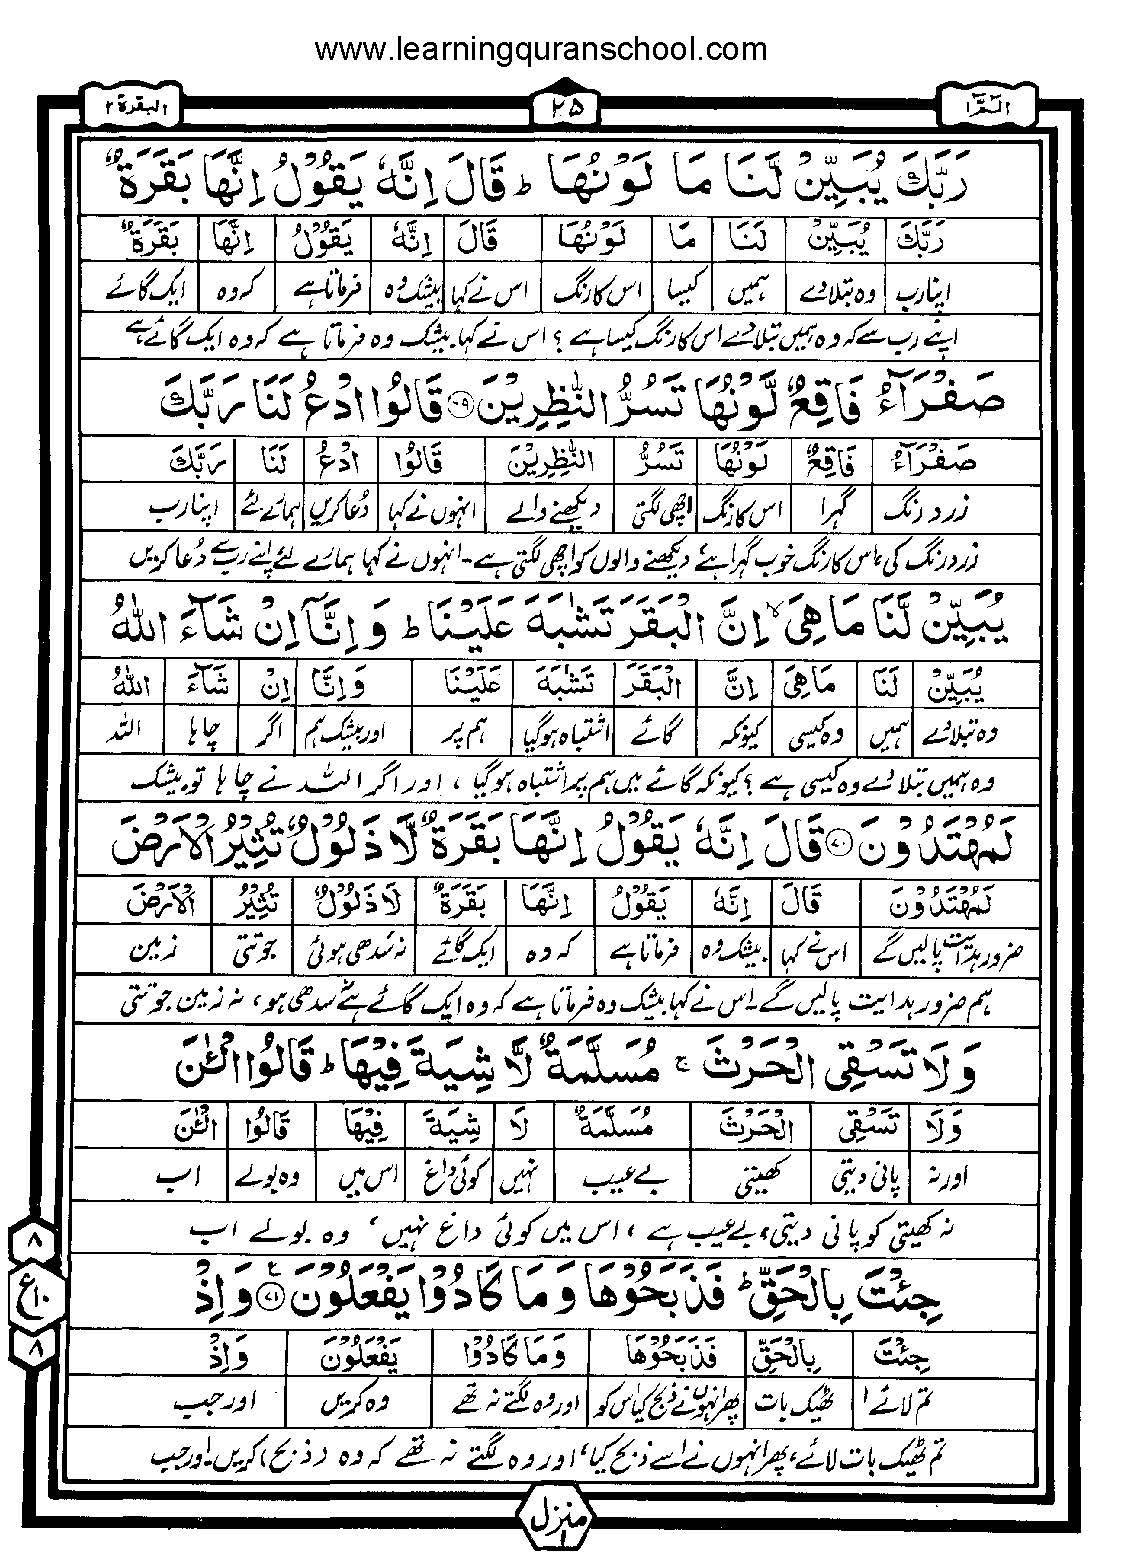 www.learningquranschool.com
الٓمّٓ ١ ٢٥ البقرة ٢
رَبَّكَ يُبَيِّنْ لَّنَا مَا لَوْنُهَا ؕ قَالَ اِنَّهٗ يَقُوْلُ اِنَّهَا بَقَرَةٌ
رَبَّكَ يُبَيِّنْ لَنَا مَا لَوْنُهَا قَالَ اِنَّهٗ يَقُوْلُ اِنَّهَا بَقَرَةٌ
اپنا رب وہ بتلادے ہمیں کیسا اس کا رنگ اس نے کہا بیشک وہ فرماتا ہے کہ وہ ایک گائے
اپنے رب سے کہ وہ ہمیں بتلا دے اس کا رنگ کیسا ہے ؟ اس نے کہا بیشک وہ فرماتا ہے کہ وہ ایک گائے ہے
صَفْرَآءُ فَاقِعٌ لَّوْنُهَا تَسُرُّ النّٰظِرِيْنَ ۶۹ قَالُوا ادْعُ لَنَا رَبَّكَ
صَفْرَآءُ فَاقِعٌ لَوْنُهَا تَسُرُّ النّٰظِرِيْنَ قَالُوا ادْعُ لَنَا رَبَّكَ
زرد رنگ گہرا اس کا رنگ اچھی لگتی دیکھنے والے انہوں نے کہا دُعا کریں ہمارے لئے اپنا رب
زرد رنگ کی، اس کا رنگ خوب گہرا ہے دیکھنے والوں کو اچھی لگتی ہے۔ انہوں نے کہا ہمارے لئے اپنے رب سے دُعا کریں
يُبَيِّنْ لَّنَا مَا هِيَ ۙ اِنَّ الْبَقَرَ تَشٰبَهَ عَلَيْنَا ؕ وَاِنَّآ اِنْ شَآءَ اللّٰهُ
يُبَيِّنْ لَنَا مَا هِيَ اِنَّ الْبَقَرَ تَشٰبَهَ عَلَيْنَا وَاِنَّا اِنْ شَآءَ اللّٰهُ
وہ بتلادے ہمیں وہ کیسی کیونکہ گائے اشتباہ ہوگیا ہم پر اور بیشک ہم اگر چاہا اللہ
وہ ہمیں بتلا دے وہ کیسی ہے ؟ کیونکہ گائے میں ہم پر اشتباہ ہو گیا ، اور اگر اللہ نے چاہا تو بیشک
لَمُهْتَدُوْنَ ۷۰ قَالَ اِنَّهٗ يَقُوْلُ اِنَّهَا بَقَرَةٌ لَّا ذَلُوْلٌ تُثِيْرُ الْاَرْضَ
لَمُهْتَدُوْنَ قَالَ اِنَّهٗ يَقُوْلُ اِنَّهَا بَقَرَةٌ لَا ذَلُوْلٌ تُثِيْرُ الْاَرْضَ
ضرور ہدایت پالیں گے اس نے کہا بیشک وہ فرماتا ہے کہ وہ ایک گائے نہ سدھی ہوئی جوتتی زمین
ہم ضرور ہدایت پالیں گے۔ اس نے کہا بیشک وہ فرماتا ہے کہ وہ ایک گائے ہے نہ سدھی ہو، نہ زمین جوتتی
وَلَا تَسْقِى الْحَرْثَ ۚ مُسَلَّمَةٌ لَّا شِيَةَ فِيْهَا ؕ قَالُوا الْـٰٔنَ
وَلَا تَسْقِى الْحَرْثَ مُسَلَّمَةٌ لَا شِيَةَ فِيْهَا قَالُوا الْـٰٔنَ
اور نہ پانی دیتی کھیتی بے عیب نہیں کوئی داغ اس میں وہ بولے اب
نہ کھیتی کو پانی دیتی، بے عیب ہے ، اس میں کوئی داغ نہیں ، وہ بولے اب
جِئْتَ بِالْحَقِّ ؕ فَذَبَحُوْهَا وَمَا كَادُوْا يَفْعَلُوْنَ ۷۱ وَاِذْ
جِئْتَ بِالْحَقِّ فَذَبَحُوْهَا وَمَا كَادُوْا يَفْعَلُوْنَ وَاِذْ
تم لائے ٹھیک بات پھر انہوں نے ذبح کیا اس کو اور وہ لگتے نہ تھے وہ کریں اور جب
تم ٹھیک بات لائے، پھر انہوں نے اسے ذبح کیا، اور وہ لگتے نہ تھے کہ وہ (ذبح) کریں۔ اور جب
٨
ع ١٠
٨
منزل ١